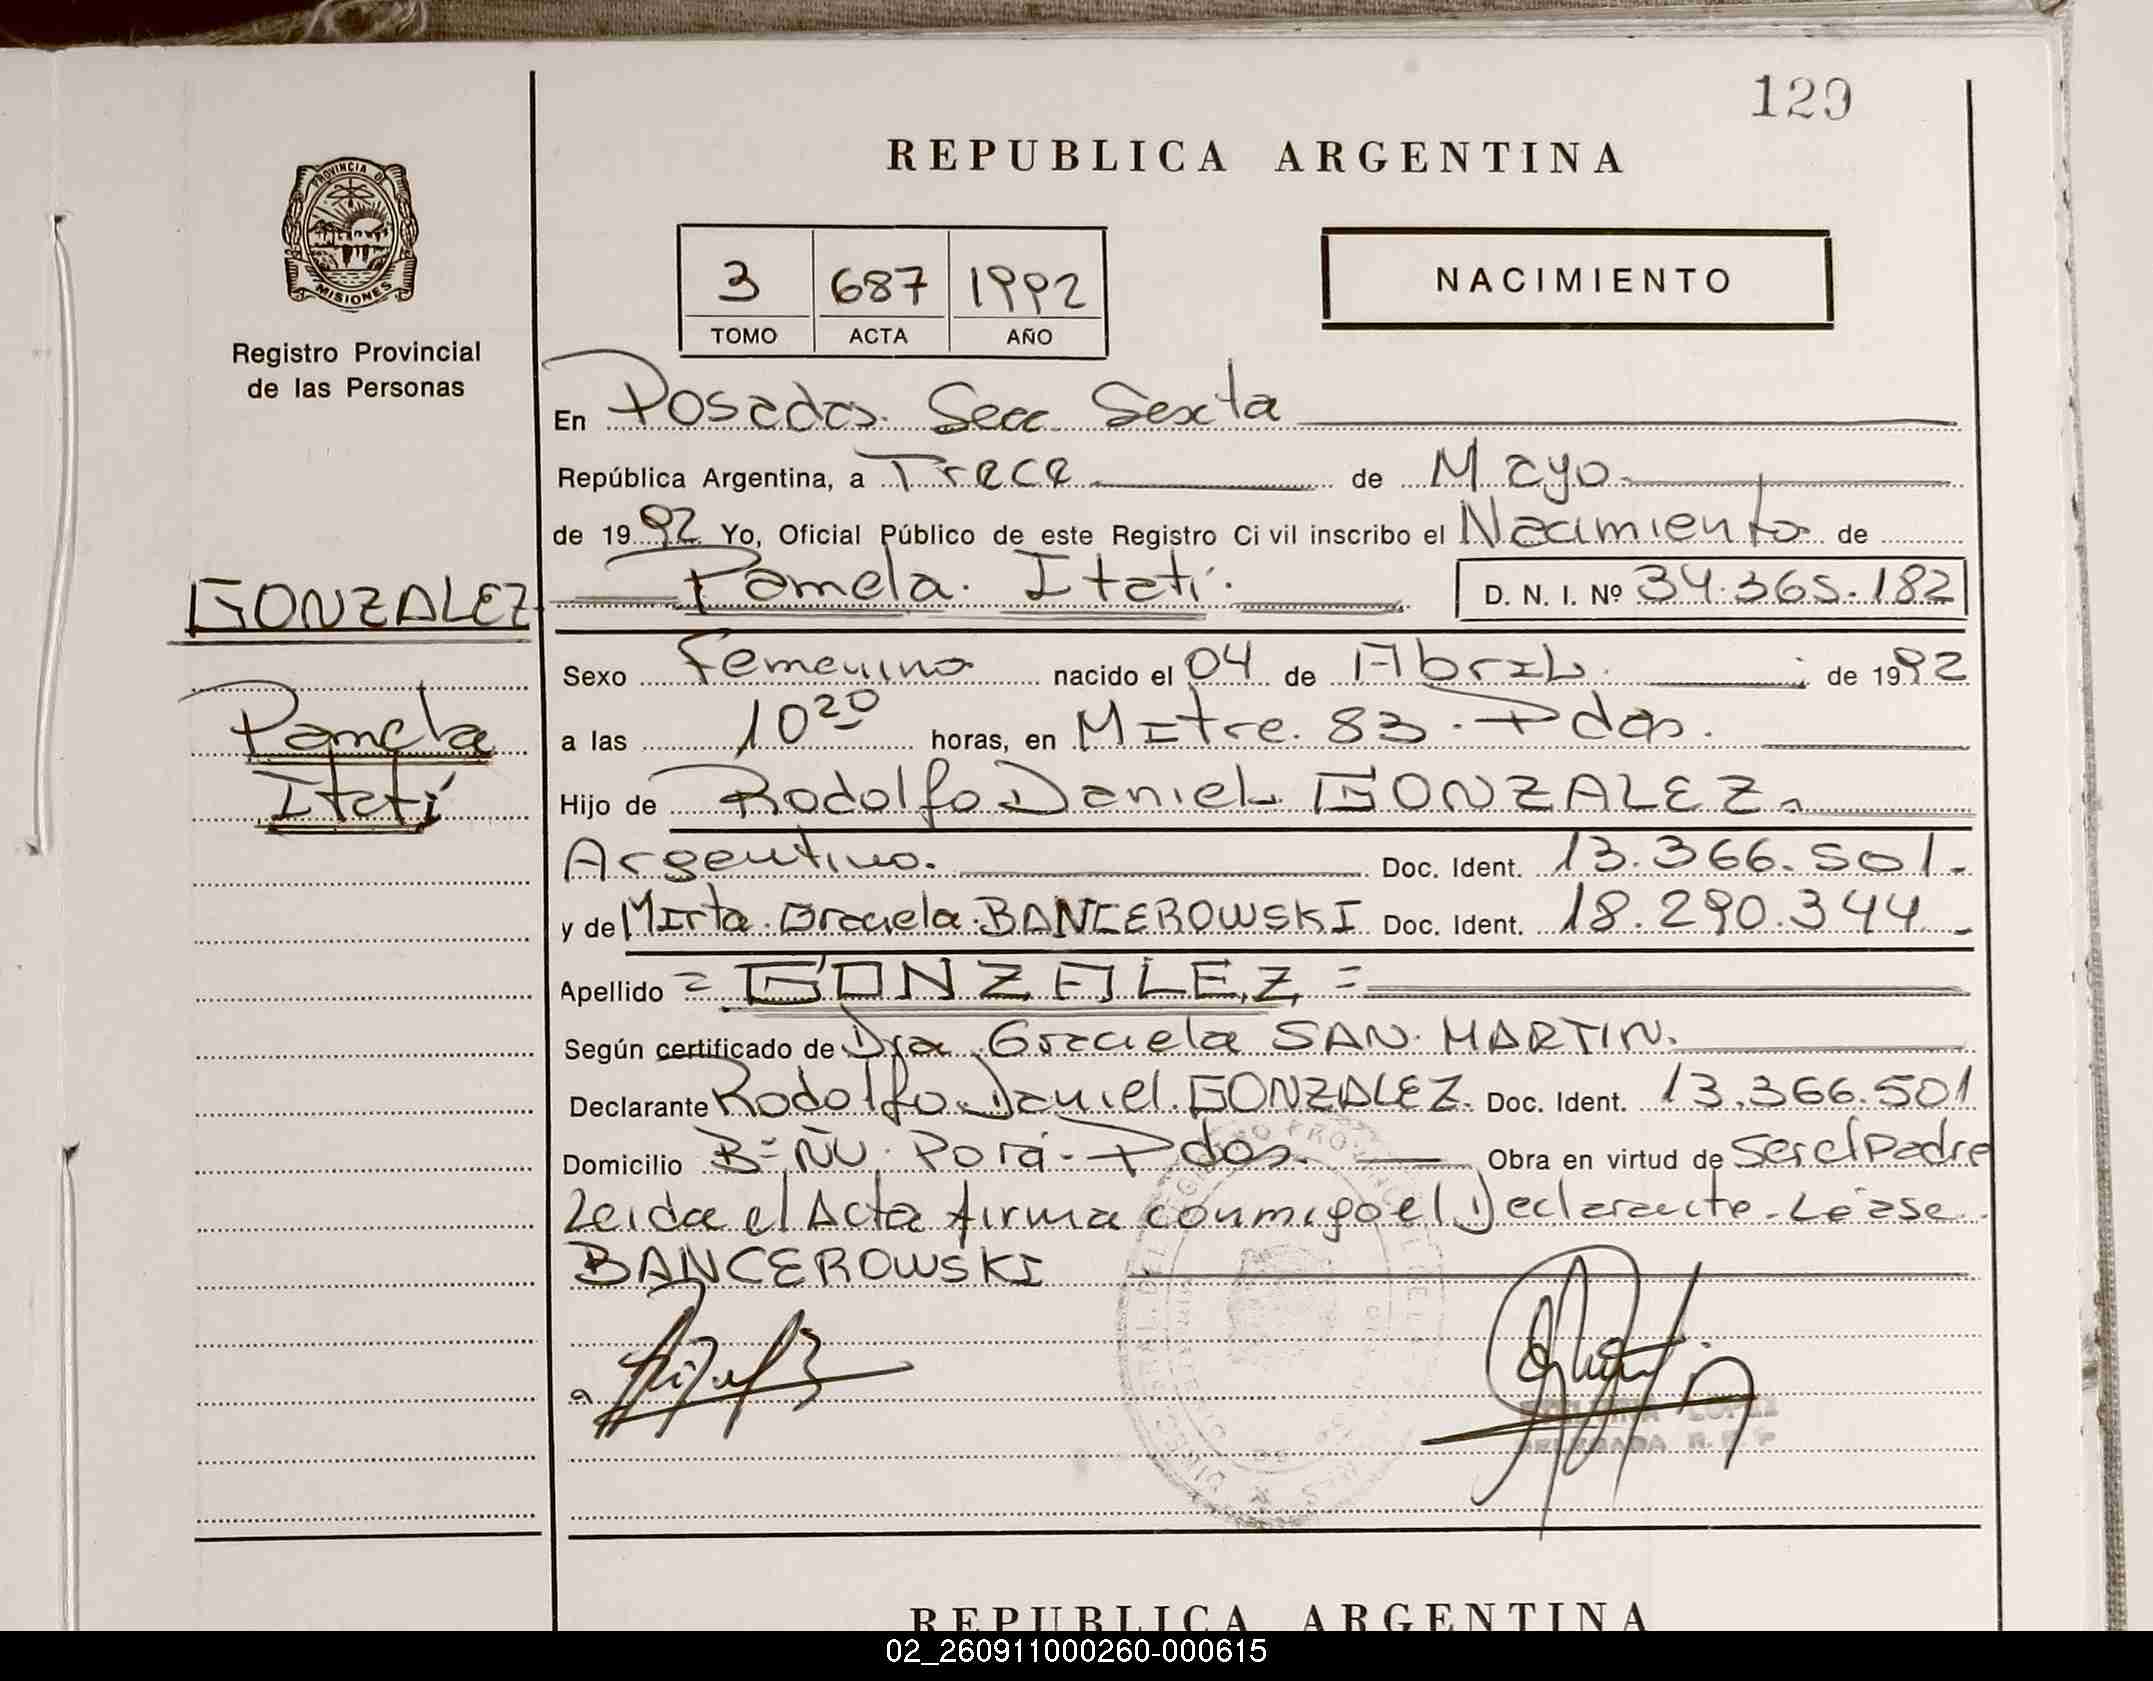 129
REPUBLICA ARGENTINA
PROVINCIA DE
MISIONES
Registro Provincial
de las Personas
3 687 1992
TOMO ACTA AÑO
NACIMIENTO
En Posadas. Secc Sexta
República Argentina, a Trece de Mayo
de 1992 Yo, Oficial Público de este Registro Civil inscribo el Nacimiento de
GONZALEZ
Pamela
Itatí
Pamela. Itatí. D. N. I. Nº 34.365.182
Sexo Femenino nacido el 04 de Abril. de 1992
a las 10 20 horas, en Mitre. 83. Pdas.
Hijo de Rodolfo Daniel GONZALEZ.
Argentino. Doc. Ident. 13.366.501.
y de Mirta. Graciela. BANCEROWSKI Doc. Ident. 18.290.344
Apellido = GONZALEZ =
Según certificado de Dra. Graciela SAN. MARTIN.
Declarante Rodolfo Daniel. GONZALEZ. Doc. Ident. 13.366.501
Domicilio Bº ÑU. Porá - Pdas. Obra en virtud de ser el Padre
Leida el Acta firma conmigo el Declarante. Léase.
BANCEROWSKI
REPUBLICA ARGENTINA
02_260911000260-000615